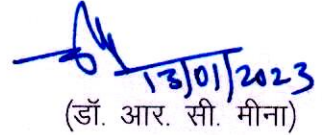 13/01/2023
(डॉ. आर. सी. मीना)